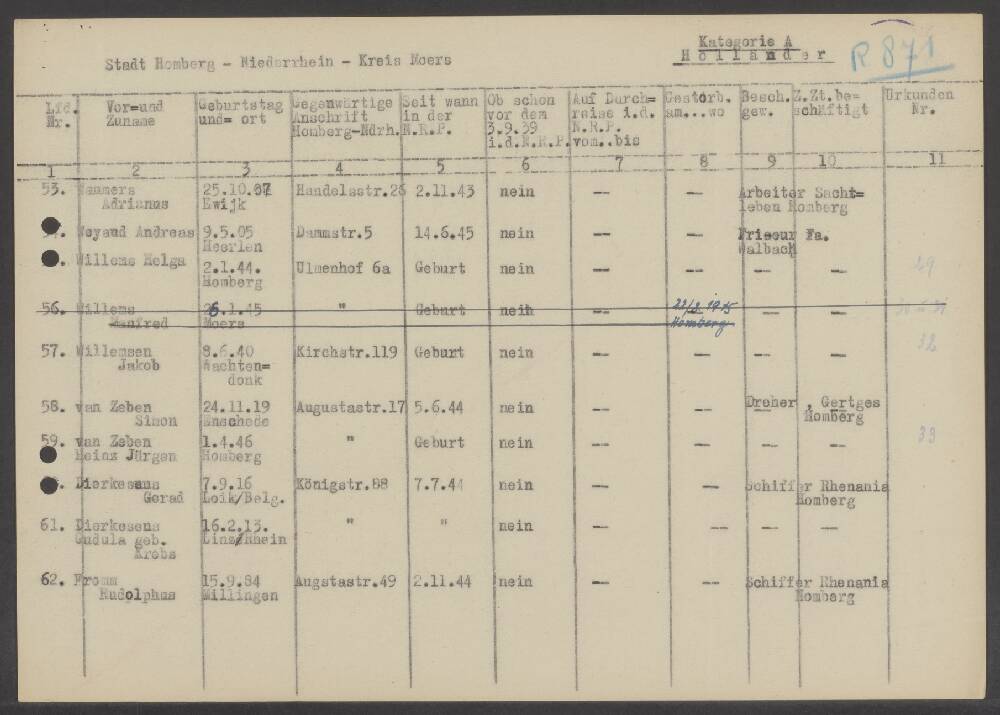 Kategorie A
Holländer
R 871
Stadt Homberg - Niederrhein - Kreis Moers
Lfd. Nr. Vor=und Zuname Geburtstag und= ort Gegenwärtige Anschrift Homberg-Ndrh. Seit wann in der N.R.P. Ob schon vor dem 3.9.39 i.d.N.R.P. Auf Durch= reise i.d. N.R.P. vom..bis Gestorb. am...wo Besch. gew. Z.Zt.be= schäftigt Urkunden Nr.
1 2 3 4 5 6 7 8 9 10 11
53. Wammers 25.10.07 Handelsstr.26 2.11.43 nein — — Arbeiter Sacht=
Adrianus Ewijk leben Homberg
Woyaud Andreas 9.5.05 Dammstr.5 14.6.45 nein — — Friseur Fa.
Heerlen Walbach
Willems Helga 2.1.44. Ulmenhof 6a Geburt nein — — — — 29
Homberg
56. Willems 26.1.45 " Geburt nein — 22/3 1945 — —
Manfred Moers Homberg
57. Willemsen 8.6.40 Kirchstr.119 Geburt nein — — — — 32
Jakob Wachten=
donk
58. van Zeben 24.11.19 Augustastr.17 5.6.44 nein — — Dreher , Gertges
Simon Enschede Homberg
59. van Zeben 1.4.46 " Geburt nein — — — — 33
Heinz Jürgen Homberg
Dierkesens 7.9.16 Königstr.88 7.7.44 nein — — Schiffer Rhenania
Gerad Loik/Belg. Homberg
61. Dierkesens 16.2.13. " " nein — — — —
Gudula geb. Linz/Rhein
Krebs
62. Fromm 15.9.84 Augstastr.49 2.11.44 nein — — Schiffer Rhenania
Rudolphus Willingen Homberg